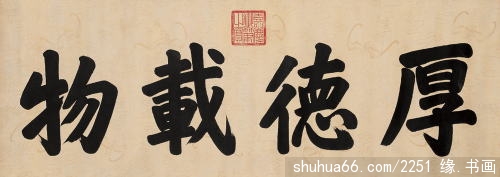 厚德載物
shuhua66.com/2251 缘.书画